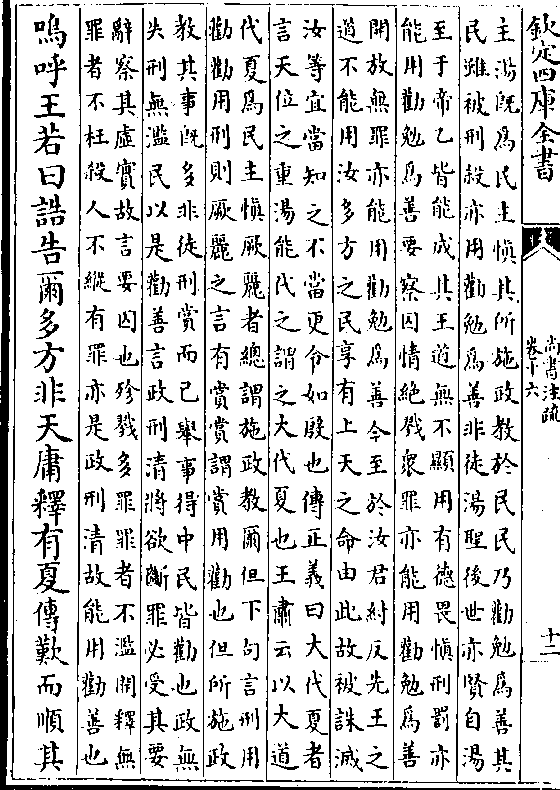 欽定四庫全書
尚書注疏
卷十六
十二
主湯既為民主慎其所施政教於民民乃勸勉為善其
民雖被刑殺亦用勸勉為善非徒湯聖後世亦賢自湯
至于帝乙皆能成其王道無不顯用有德畏慎刑罰亦
能用勸勉為善要察囚情絶戮衆罪亦能用勸勉為善
開放無罪亦能用勸勉為善今至於汝君紂反先王之
道不能用汝多方之民享有上天之命由此故被誅滅
汝等宜當知之不當更令如殷也傳正義曰大代夏者
言天位之重湯能代之謂之大代夏也王肅云以大道
代夏為民主慎厥麗者總謂施政教爾但下句言刑用
勸勸用刑則厥麗之言有賞賞謂賞用勸也但所施政
教其事既多非徒刑賞而已舉事得中民皆勸也政無
失刑無濫民以是勸善言政刑清將欲斷罪必受其要
辭察其虚實故言要囚也殄戮多罪罪者不濫開釋無
罪者不枉殺人不縱有罪亦是政刑清故能用勸善也
嗚呼王若曰誥告爾多方非天庸釋有夏傳歎而順其